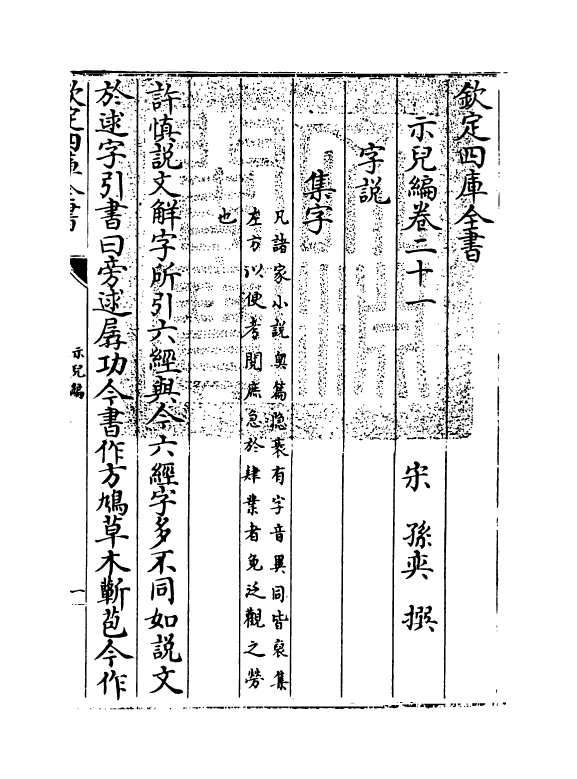 欽定四庫全書
示兒編卷二十一
宋 孫奕 撰
字説
集字
凡諸家小説奥篇隐袠有字音異同皆裒集
左方以便考閱庶急於肆業者免泛觀之勞
也
許慎説文解字所引六經與今六經字多不同如説文
於逑字引書曰旁逑孱功今書作方鳩草木蔪苞今作
欽定四庫全書
示兒編
一